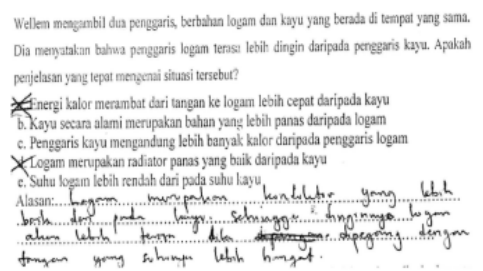 Wellem mengambil dua penggaris, berbahan logam dan kayu yang berada di tempat yang sama.
Dia menyatakan bahwa penggaris logam terasa lebih dingin daripada penggaris kayu. Apakah
penjelasan yang tepat mengenai situasi tersebut?
Energi kalor merambat dari tangan ke logam lebih cepat daripada kayu
b. Kayu secara alami merupakan bahan yang lebih panas daripada logam
c. Penggaris kayu mengandung lebih banyak kalor daripada penggaris logam
Logam merupakan radiator panas yang baik daripada kayu
e. Suhu logam lebih rendah dari pada suhu kayu
Alasan: Logam merupakan konduktor yang lebih
baik dari pada kayu, sehingga dinginnya logam
akan lebih terasa bila dipegang dengan
tangan yang suhunya lebih hangat.